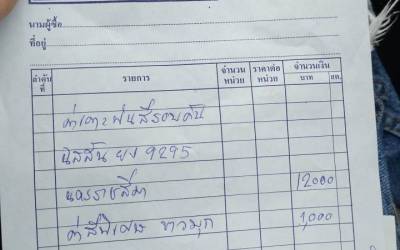 นามผู้ซื้อ
ที่อยู่
ลำดับที่ รายการ จำนวนหน่วย ราคาต่อหน่วย จำนวนเงิน บาท สต.
ค่าเคาะพ่นสีรอบคัน
นิสสัน ยง 9295
นครราชสีมา 12000
ค่าสีพิเศษ ขาวมุก 1,000